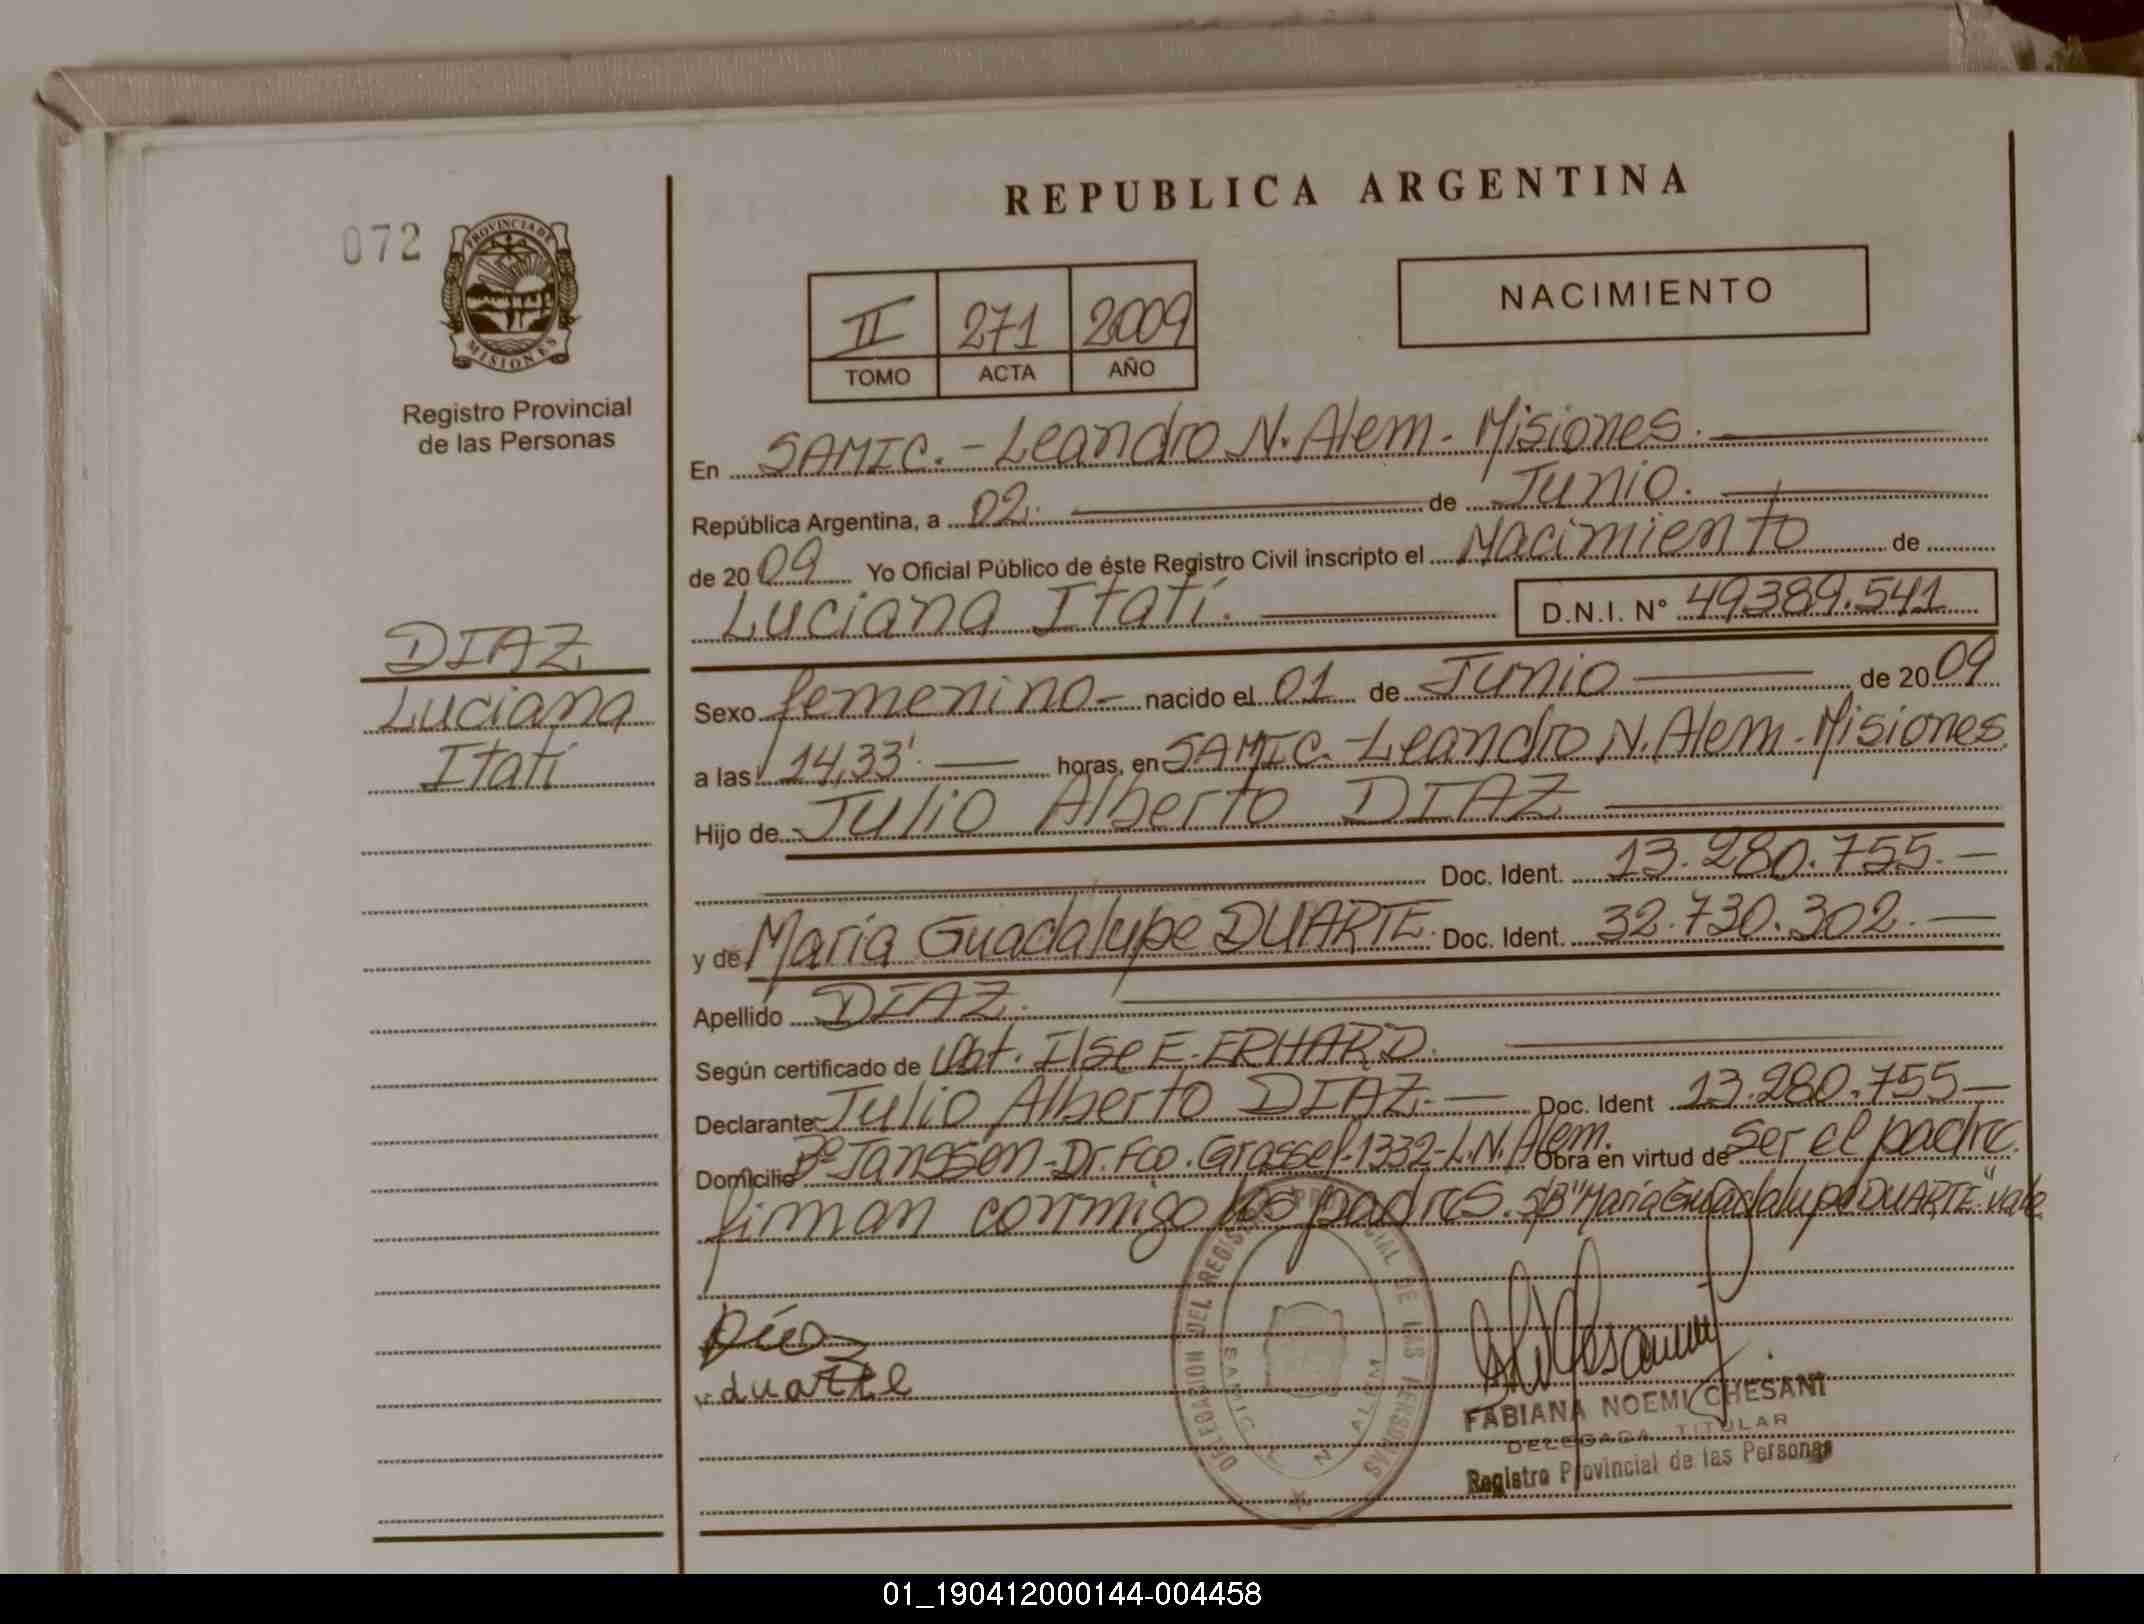 072
PROVINCIA DE
MISIONES
Registro Provincial
de las Personas
DIAZ
Luciana
Itatí
REPUBLICA ARGENTINA
II 271 2009
TOMO ACTA AÑO
NACIMIENTO
En SAMIC. - Leandro N. Alem - Misiones.
República Argentina, a 02. de Junio.
de 2009 Yo Oficial Público de éste Registro Civil inscripto el Nacimiento de
Luciana Itatí. D.N.I. N° 49389.541
Sexo femenino - nacido el 01 de Junio de 2009
a las 14,33'. horas, en SAMIC. - Leandro N. Alem - Misiones
Hijo de Julio Alberto DIAZ
Doc. Ident. 13.280.755. -
y de María Guadalupe DUARTE. Doc. Ident. 32.730.302. -
Apellido DIAZ.
Según certificado de Obt. Ilse E. ERHARD.
Declarante Julio Alberto DIAZ. - Doc. Ident 13.280.755 -
Domicilio B° Janssen - Dr. Fco. Grassel - 1332 - L.N. Alem. Obra en virtud de ser el padre.
firman conmigo los padres. S/B "María Guadalupe DUARTE" vale
Díaz
duarte
DELEGACION DEL REGISTRO PROVINCIAL DE LAS PERSONAS
SAMIC L. N. ALEM
FABIANA NOEMI CHESANI
DELEGADA TITULAR
Registro Provincial de las Personas
01_190412000144-004458